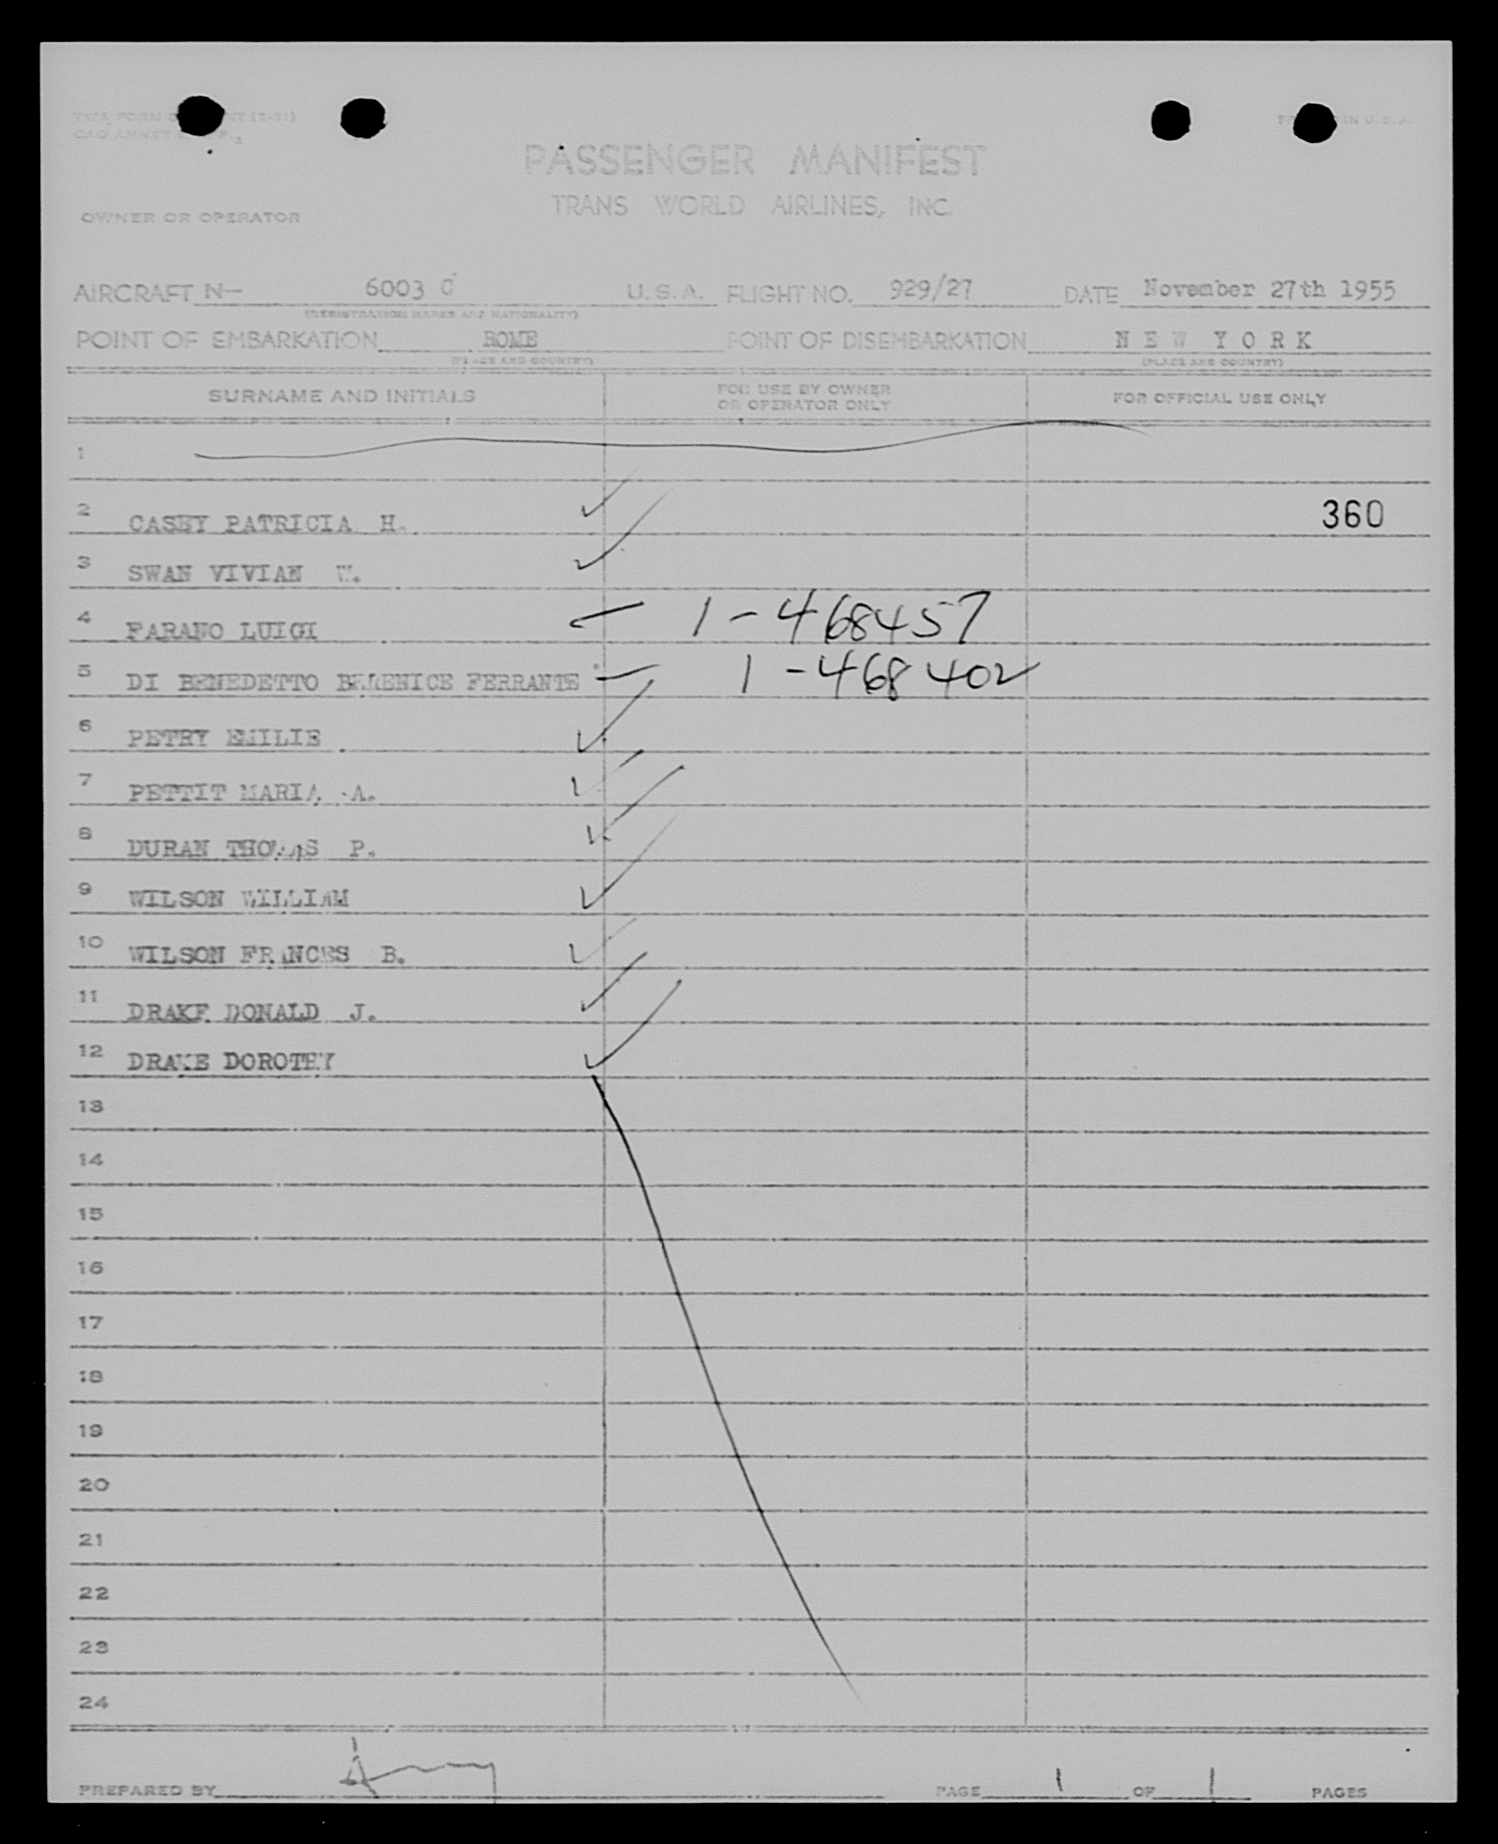 PASSENGER MANIFEST
TRANS WORLD AIRLINES, INC.
OWNER OR OPERATOR
AIRCRAFT N— 6003 C U.S.A. FLIGHT NO. 929/27 DATE November 27th 1955
(REGISTRATION MARKS AND NATIONALITY)
POINT OF EMBARKATION ROME POINT OF DISEMBARKATION NEW YORK
(PLACE AND COUNTRY) (PLACE AND COUNTRY)
SURNAME AND INITIALS FOR USE BY OWNER OR OPERATOR ONLY FOR OFFICIAL USE ONLY
1
2 CASEY PATRICIA H. 360
3 SWAN VIVIAN W.
4 FARANO LUIGI 1-468457
5 DI BENEDETTO BERENICE FERRANTE 1-468402
6 PETRY EMILIE
7 PETTIT MARIA A.
8 DURAN THOMAS P.
9 WILSON WILLIAM
10 WILSON FRANCES B.
11 DRAKE DONALD J.
12 DRAKE DOROTHY
13
14
15
16
17
18
19
20
21
22
23
24
PREPARED BY PAGE 1 OF 1 PAGES